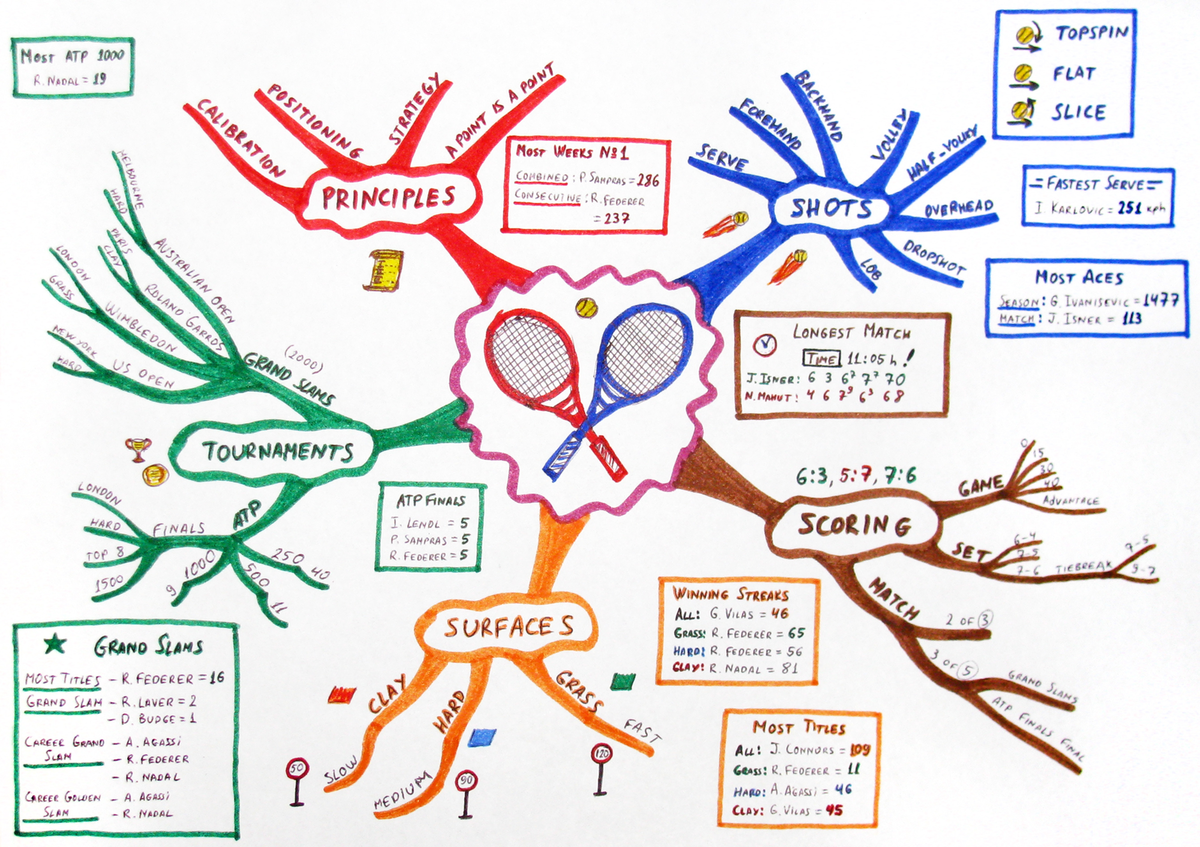 MOST ATP 1000
R. NADAL = 19
CALIBRATION
POSITIONING
STRATEGY
A POINT IS A POINT
PRINCIPLES
MOST WEEKS Nº1
COMBINED : P. SAMPRAS = 286
CONSECUTIVE : R. FEDERER
= 237
SERVE
FOREHAND
BACKHAND
VOLLEY
HALF-VOLLEY
OVERHEAD
DROPSHOT
LOB
SHOTS
TOPSPIN
FLAT
SLICE
=FASTEST SERVE=
I. KARLOVIC = 251 kph
MOST ACES
SEASON: G. IVANISEVIC = 1477
MATCH: J. ISNER = 113
LONGEST MATCH
TIME 11:05 h !
J. ISNER: 6 3 6⁷ 7⁷ 70
N. MAHUT: 4 6 7⁹ 6³ 68
MELBOURNE
HARD
AUSTRALIAN OPEN
PARIS
CLAY
ROLAND GARROS
LONDON
GRASS
WIMBLEDON
NEW YORK
HARD
US OPEN
GRAND SLAMS
(2000)
TOURNAMENTS
ATP
FINALS
LONDON
HARD
TOP 8
1500
1000
9
500
11
250
40
ATP FINALS
I. LENDL = 5
P. SAMPRAS = 5
R. FEDERER = 5
6:3, 5:7, 7:6
SCORING
GAME
0
15
30
40
ADVANTAGE
SET
6-4
7-5
7-6
TIEBREAK
7-5
9-7
MATCH
2 OF 3
3 OF 5
GRAND SLAMS
ATP FINALS FINAL
SURFACES
CLAY
SLOW
50
HARD
MEDIUM
90
GRASS
FAST
120
WINNING STREAKS
ALL: G. VILAS = 46
GRASS: R. FEDERER = 65
HARD: R. FEDERER = 56
CLAY: R. NADAL = 81
MOST TITLES
ALL: J. CONNORS = 109
GRASS: R. FEDERER = 11
HARD: A. AGASSI = 46
CLAY: G. VILAS = 45
GRAND SLAMS
MOST TITLES - R. FEDERER = 16
GRAND SLAM - R. LAVER = 2
- D. BUDGE = 1
CAREER GRAND - A. AGASSI
SLAM - R. FEDERER
- R. NADAL
CAREER GOLDEN - A. AGASSI
SLAM - R. NADAL